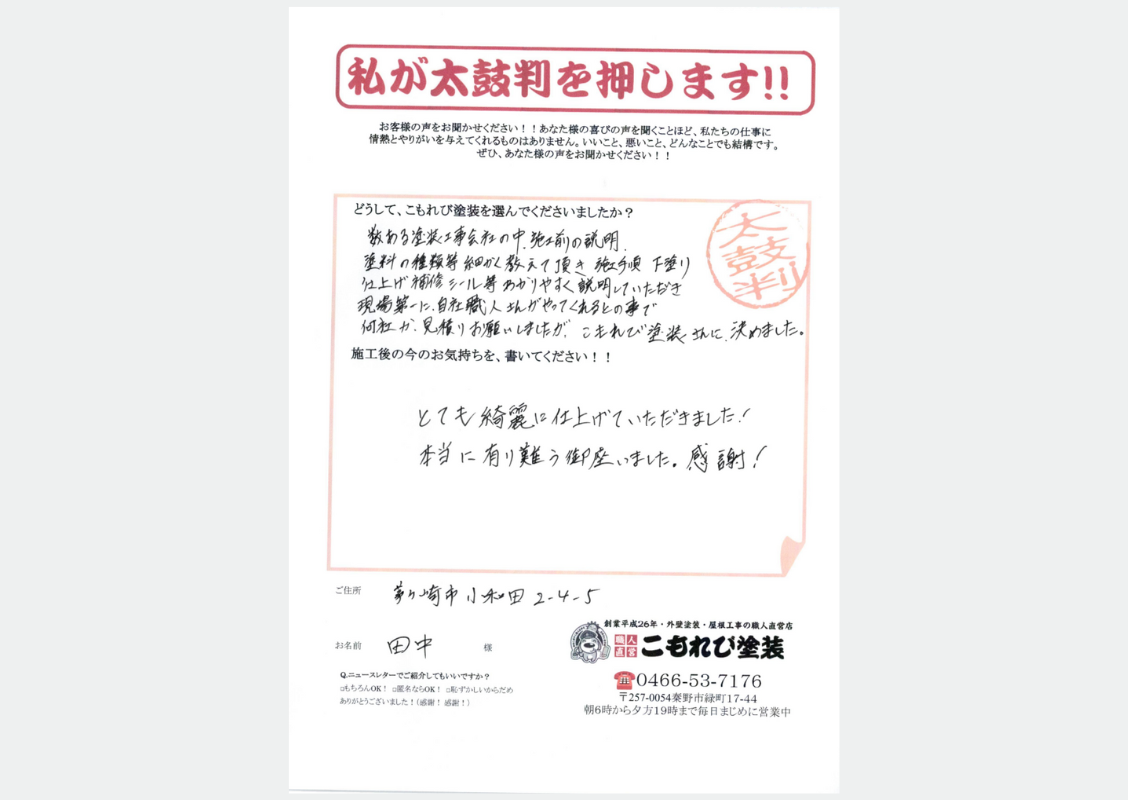 私が太鼓判を押します!!
お客様の声をお聞かせください！！あなた様の喜びの声を聞くことほど、私たちの仕事に
情熱とやりがいを与えてくれるものはありません。いいこと、悪いこと、どんなことでも結構です。
ぜひ、あなた様の声をお聞かせください！！
どうして、こもれび塗装を選んでくださいましたか？
太鼓判
数ある塗装工事会社の中、施工前の説明、
塗料の種類等細かく教えて頂き 施工手順 下塗り
仕上げ補修シール等わかりやすく説明していただき
現場第一に、自社職人さんがやってくれるとの事で
何社か、見積りお願いしましたが、こもれび塗装さんに、決めました。
施工後の今のお気持ちを、書いてください！！
とても綺麗に仕上げていただきました!
本当に有り難う御座いました。感謝!
ご住所 茅ヶ崎市小和田2-4-5
お名前 田中 様
Q.ニュースレターでご紹介してもいいですか？
□もちろんOK！ □匿名ならOK！ □恥ずかしいからだめ
ありがとうございました！（感謝！感謝！）
創業平成26年・外壁塗装・屋根工事の職人直営店
職人直営 こもれび塗装
☎0466-53-7176
〒257-0054秦野市緑町17-44
朝6時から夕方19時まで毎日まじめに営業中